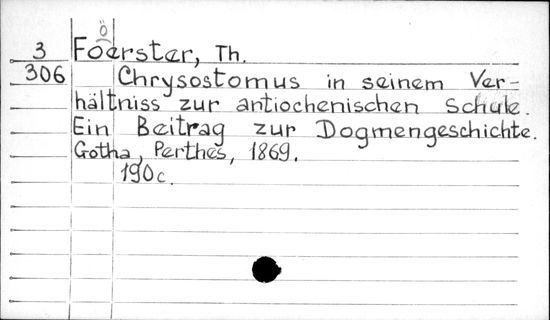 ö
3 Foerster, Th.
306 Chrysostomus in seinem Ver-
hältniss zur antiochenischen Schule.
Ein Beitrag zur Dogmengeschichte.
Gotha, Perthes, 1869.
190c.